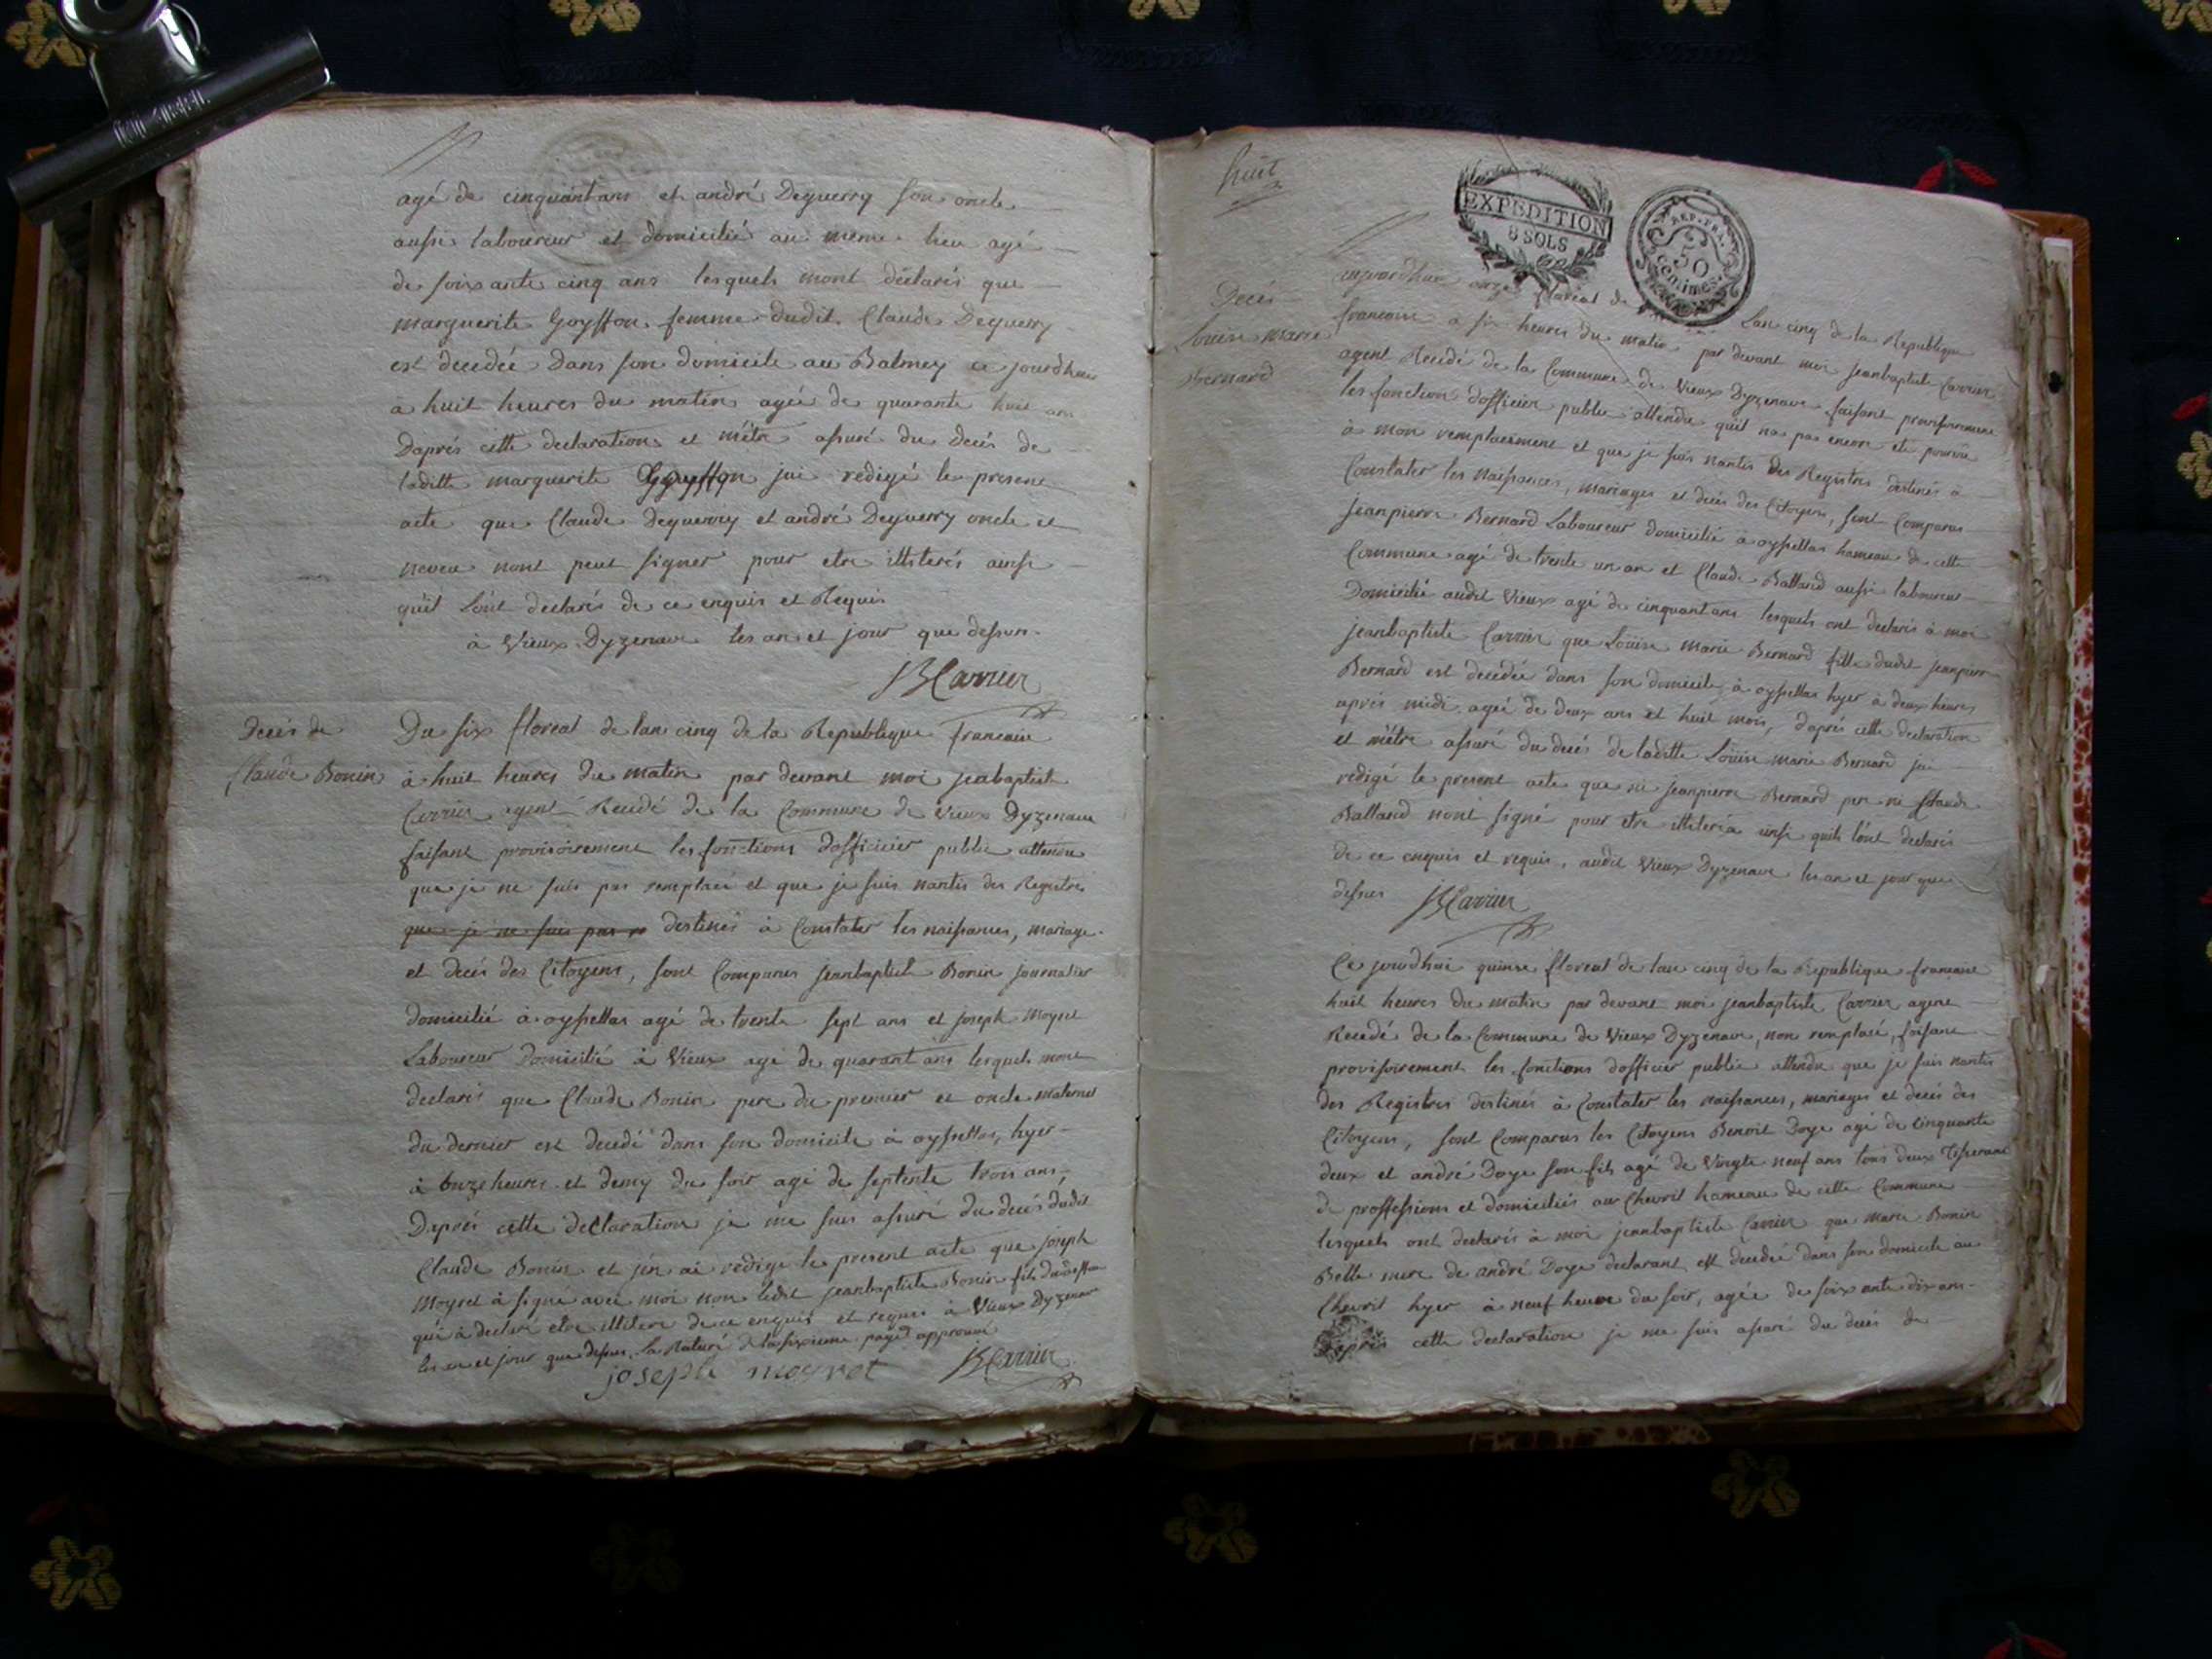 agé de cinquantans et andré Deguerry son oncle
aussi laboureur et domicilié au meme lieu agé
de soixante cinq ans lesquels mont déclarés que
marguerite Goyffon femme dudit Claude Deguerry
est decedée Dans son domicile au Balmey ce jourdhui
à huit heures du matin agée de quarante huit ans
Daprés cette declaration et métre assuré du Decés de
laditte marguerite Goyffon jai redigé le present
acte que Claude Deguerry et andré Deguerry oncle et
neveu nont peut signer pour etre illiterés ainsi
quil Lont declarés de ce enquis et Requis
à Vieux Dyzenave les an et jour que dessus.
JBCarrier
Decés de
Claude Bonin
Du six floreal de lan cinq de la Republique francaise
à huit heures du matin par devant moi jeabaptiste
Carrier agent Recedé de la Commune de Vieux Dyzenave
faisant provisoirement les fonctions dofficier public attendu
que je ne suis pas remplacé et que je suis nantis des Registres
que je ne suis pas re destinés à Constater les naissances, mariage
et decés des Citoyens, sont Comparus jeanbaptiste Bonin journalier
domicilié à oyssellas agé de trente sept ans et joseph Moyret
Laboureur Domicilié à Vieux agé de quarant ans lesquels mont
declarés que Claude Bonin pere du premier et oncle maternel
du dernier est decedé dans son domicile à oyssellas, hyer
à Onze heures et demy du soir agé de septente trois ans,
Daprés cette declaration je me suis assuré du decés dudit
Claude Bonin et jen ai redigé le present acte que joseph
Moyret à signé avec moi non ledit jeanbaptiste Bonin fils dudeffun
qui à declaré etre illitere de ce enquis et requis à Vieux Dyzenave
les an et jour que dessus. La Rature de la sixieme page approuvé
joseph moyret JBCarrier
huit
EXPEDITION
8 SOLS
REP. FRA.
50
centimes
Decés
Louise Marie
Bernard
aujourdhui onze floreal de Lan cinq de la Republique
francaise à six heures du matin par devant moi jeanbaptiste Carrier
agent Recedé de la Commune de Vieux Dyzenave faisant provisoirement
les fonction dofficier public attendu quil na pas encore eté pourvu
à mon remplacement et que je suis nantis des Registres destinés à
Constater les naissances, mariages et decés des Citoyens, sont Comparus
jeanpierre Bernard Laboureur domicilié à oyssellas hameau de cette
Commune agé de trente un an et Claude Balland aussi laboureur
Domicilié audit Vieux agé de cinquantans lesquels ont declarés à moi
jeanbaptiste Carrier que Louise Marie Bernard fille dudit jeanpierre
Bernard est decedée dans son domicile à oyssellas hyer à deux heures
aprés midi, agée de deux ans et huit mois, daprés cette declaration
et métre assuré du decés de laditte Louise marie Bernard jai
redigé le present acte que ni jeanpierre Bernard pere ni Claude
Balland nont signé pour etre illiterés ainsi quils lont declarés
de ce enquis et requis, audit Vieux Dyzenave les an et jour que
dessus JBCarrier
Ce jourdhui quinse floreal de lan cinq de la Republique francaise
huit heures du matin par devant moi jeanbaptiste Carrier agent
Recedé de la Commune de Vieux Dyzenave, non remplacé, faisant
provisoirement les fonctions dofficier public attendu que je suis nantis
des Registres destinés à Constater les naissances, mariages et decés des
Citoyens, sont Comparus les Citoyens Benoit Doye agé de Cinquante
deux et andré Doye son fils agé de Vingte neuf ans tous deux Tisserand
de proffessions et domiciliés au Chevril hameau de cette Commune
lesquels ont declarés à moi jeanbaptiste Carrier que Marie Bonin
Belle mere de andré Doye declarant est decedée dans son domicile au
Chevril hyer à neuf heure du soir, agée de soixante dix ans.
Daprés cette declaration je me suis assuré du decés de